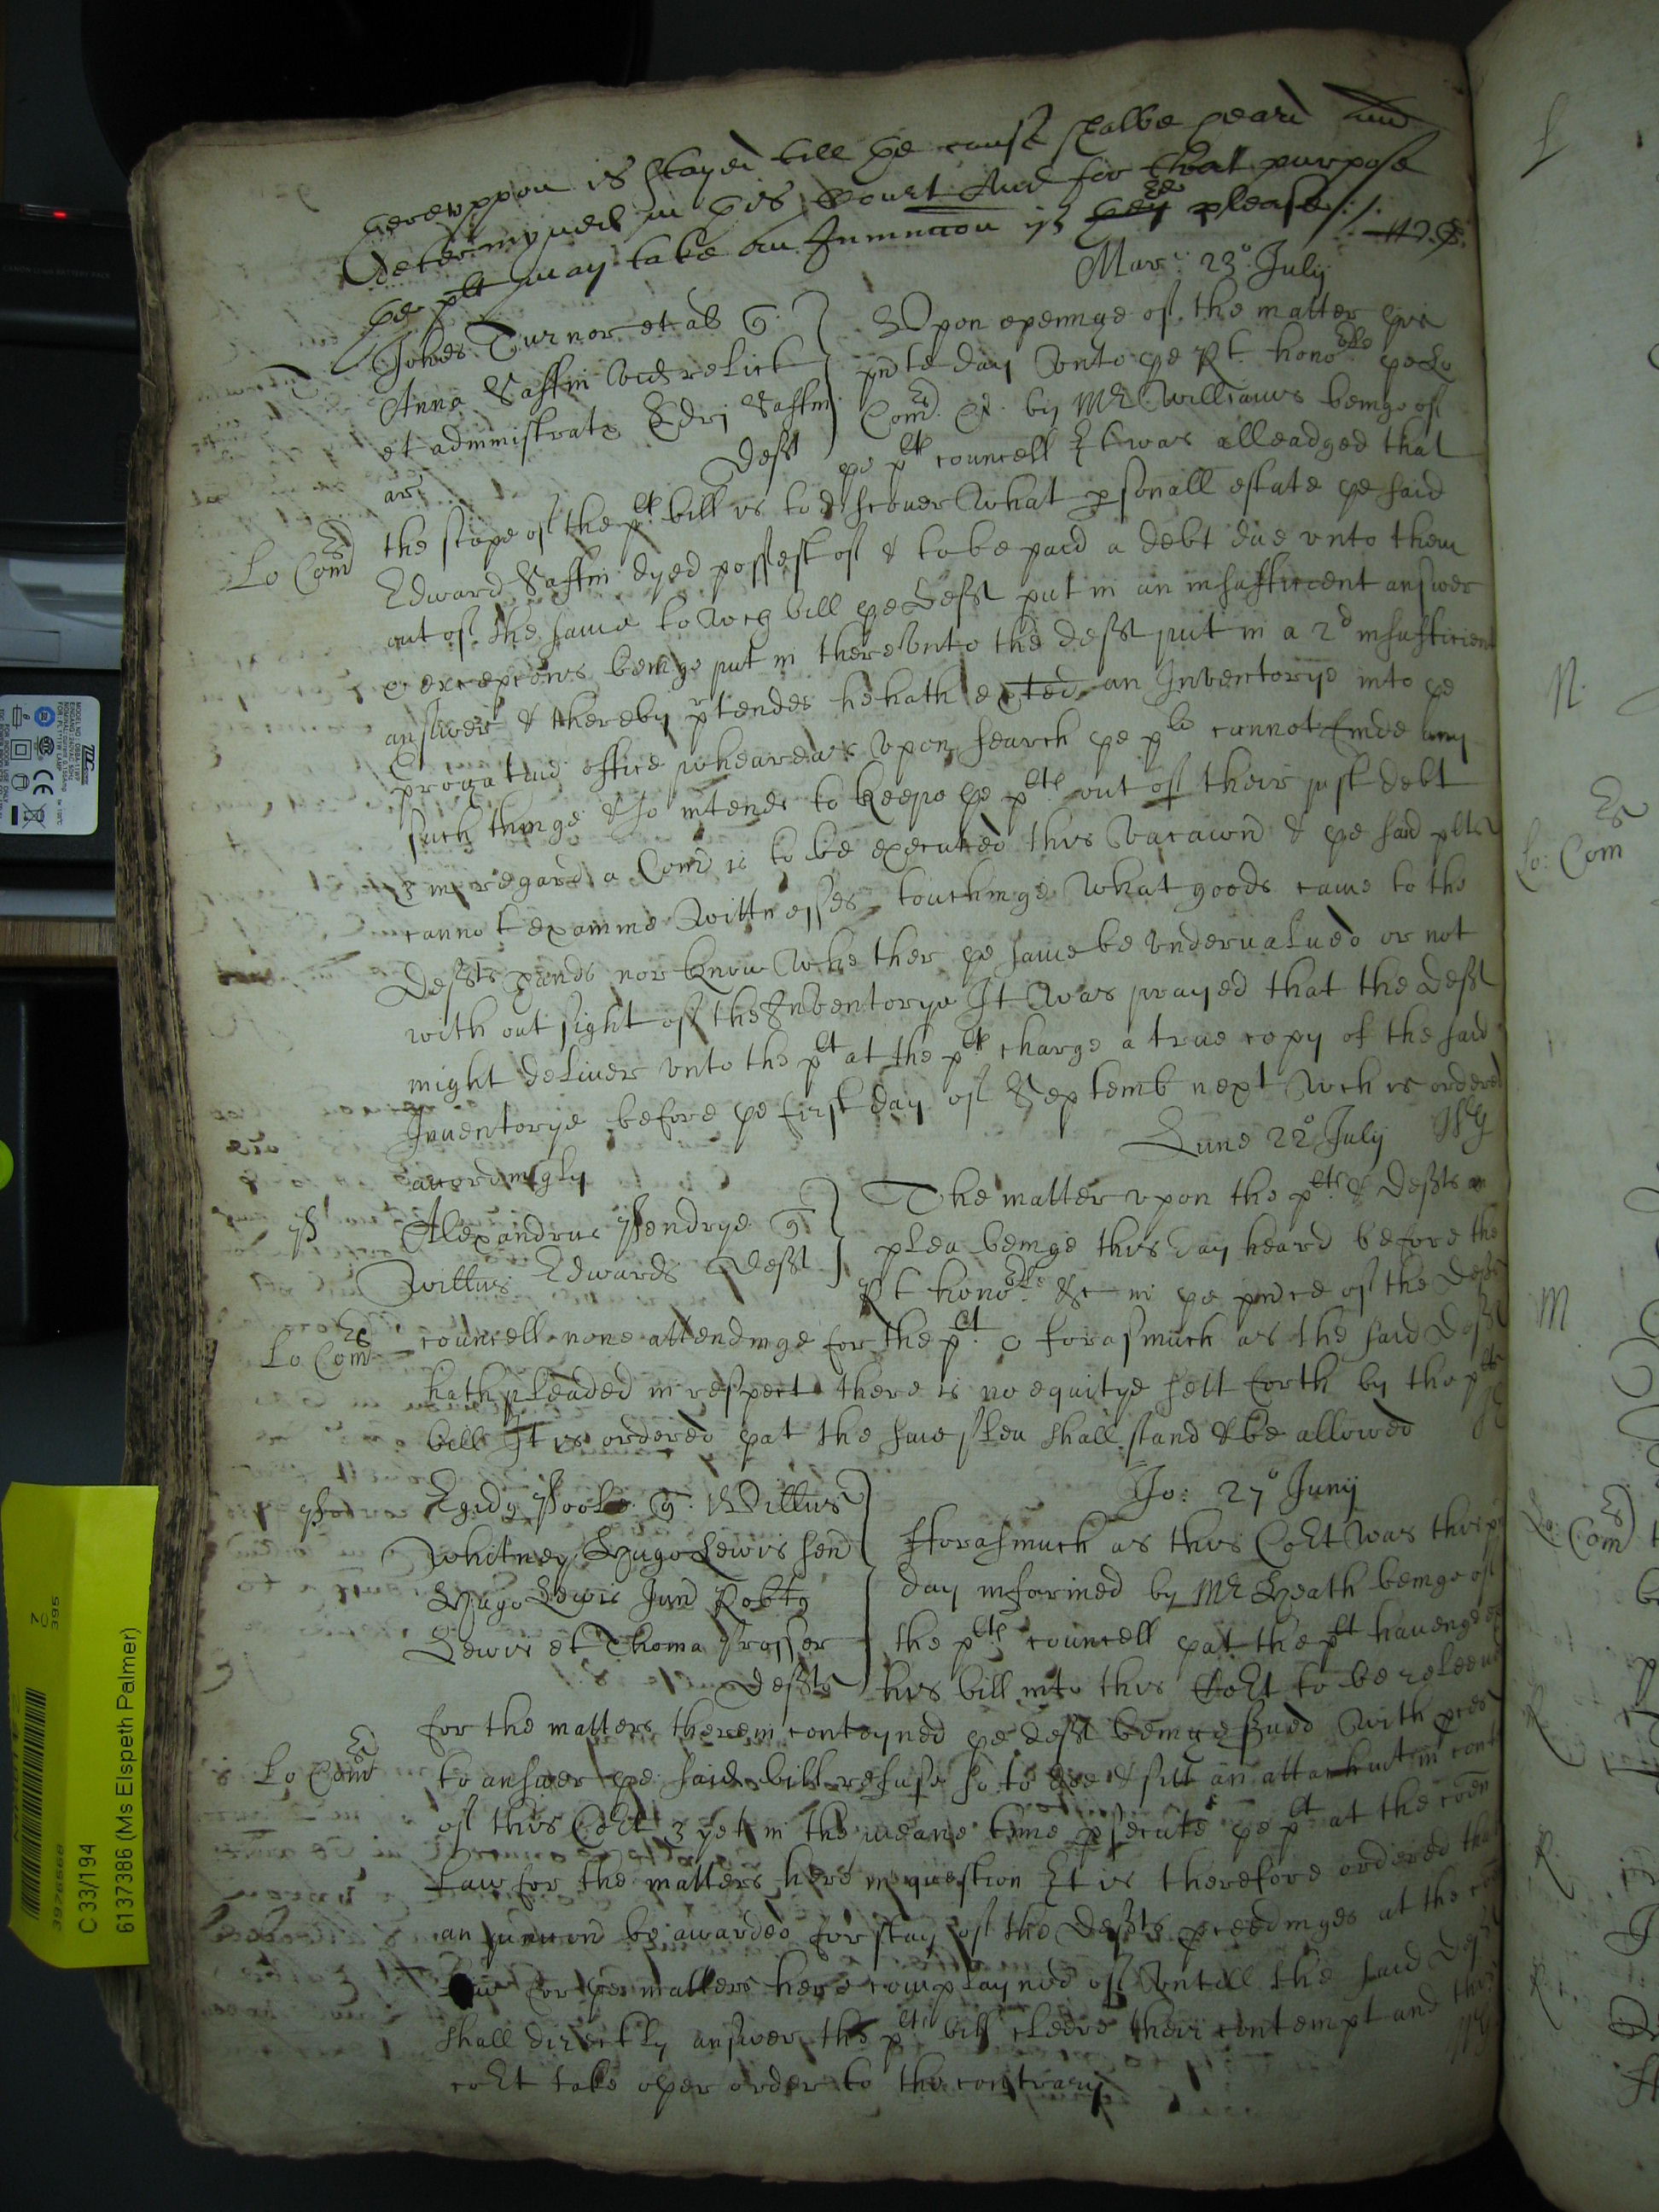 herevppon is stayed till the cause shalbe heard and
determyned in this Court And for that purpose
the plt may take an Iniunccon if they he please
Mar: 23º July
Johes Turnor et al q
Anna Saffin vid relict
et administratr Edri Saffin
ar
Deft
Vpon openinge of the matter this
pnte day vnto the Rt honoble the Lo
Comrs &c. by Mr Williams beinge of
the plts councell It was alleadged that
Lo Comrs
the scope of the plts bill is to discouer what psonall estate the said
Edward Saffin dyed possest of & to be paid a debt due vnto them
out of the same to wch bill the Deft put in an insufficient answer
& excepcons beinge put in therevnto the Deft put in a 2d insufficient
answer & thereby prtendes he hath an Inventorye into the
progatiue office wheareas vpon search the plts cannot finde any
such thinge & so intends to keepe the plts out of their just debt
& in regard a Com is to be executed this vacacon & the said plts
cannot examine wittnesses touchinge what goods came to the
Defts hands nor know whether the same be vndervalued or not
with out sight of the Inventorye It was prayed that the Deft
might deliuer vnto the plt at the plts charge a true copy of the said
Inuentorye before the first day of Septemb next wch is ordered
accordingly
Lune 22º July
P
Alexandrus Pendrye q
Willus Edwards Deft
The matter vpon the plts & Defts
plea beinge this day heard before the
Rt honoble &c in the pnce of the Defts
Lo Comrs
councell none attendinge for the plt & forasmuch as the said Deft
hath pleaded in respect there is no equitye sett forth by the plts
bill It is ordered that the same plea shall stand & be allowed
Jo: 27º Junij
Po
Egidy Poole q Willus
Whitney Hugo Lewis sen
Hugo Lewis Jun Robtq
Lewis et Thoma Prosser
Defts
fforasmuch as this Cort was this
day informed by Mr Heath beinge of
the plts councell that the plt hauinge
his bill into this Cort to be releeued
for the matters therein conteyned the deft beinge serued with proces
Lo Comrs
to answer the said bill refuse so to doe & sitt an attachmt in cont
of this Cort & yet in the meane time psecute the plt at the coen
Law for the matters here in question It is therefore ordered that
an Iniuncon be awarded for stay of the Defts pceedinges at the
Law for the matters here complayned of vntill the said Deft
shall directly answer the plts bill cleere their contempt and this
cort take other order to the contrary
Lo: Com
Lo: Com
C 33/194
6137386 (Ms Elspeth Palmer)
3976568